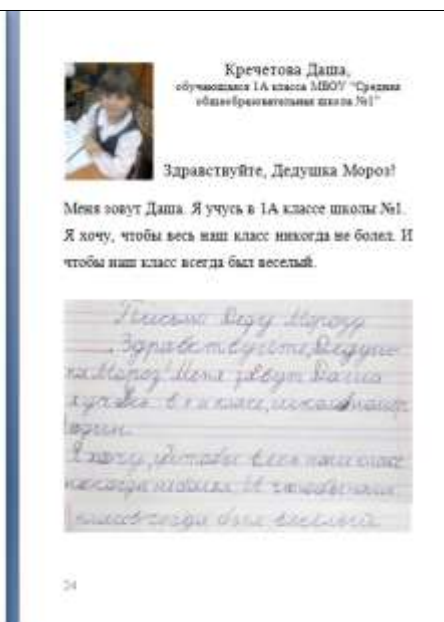 Кречетова Даша,
обучающаяся 1А класса МБОУ "Средняя
общеобразовательная школа №1"
Здравствуйте, Дедушка Мороз!
Меня зовут Даша. Я учусь в 1А классе школы №1.
Я хочу, чтобы весь наш класс никогда не болел. И
чтобы наш класс всегда был веселый.
Письмо Деду Морозу
Здравствуйте, Дедуш
ка Мороз! Меня зовут Даша
я учусь в 1 а класе, школа
один.
Я хочу, чтобы весь наш класс
никогда неболел. И чтобы наш
класс всегда был весёлый.
24